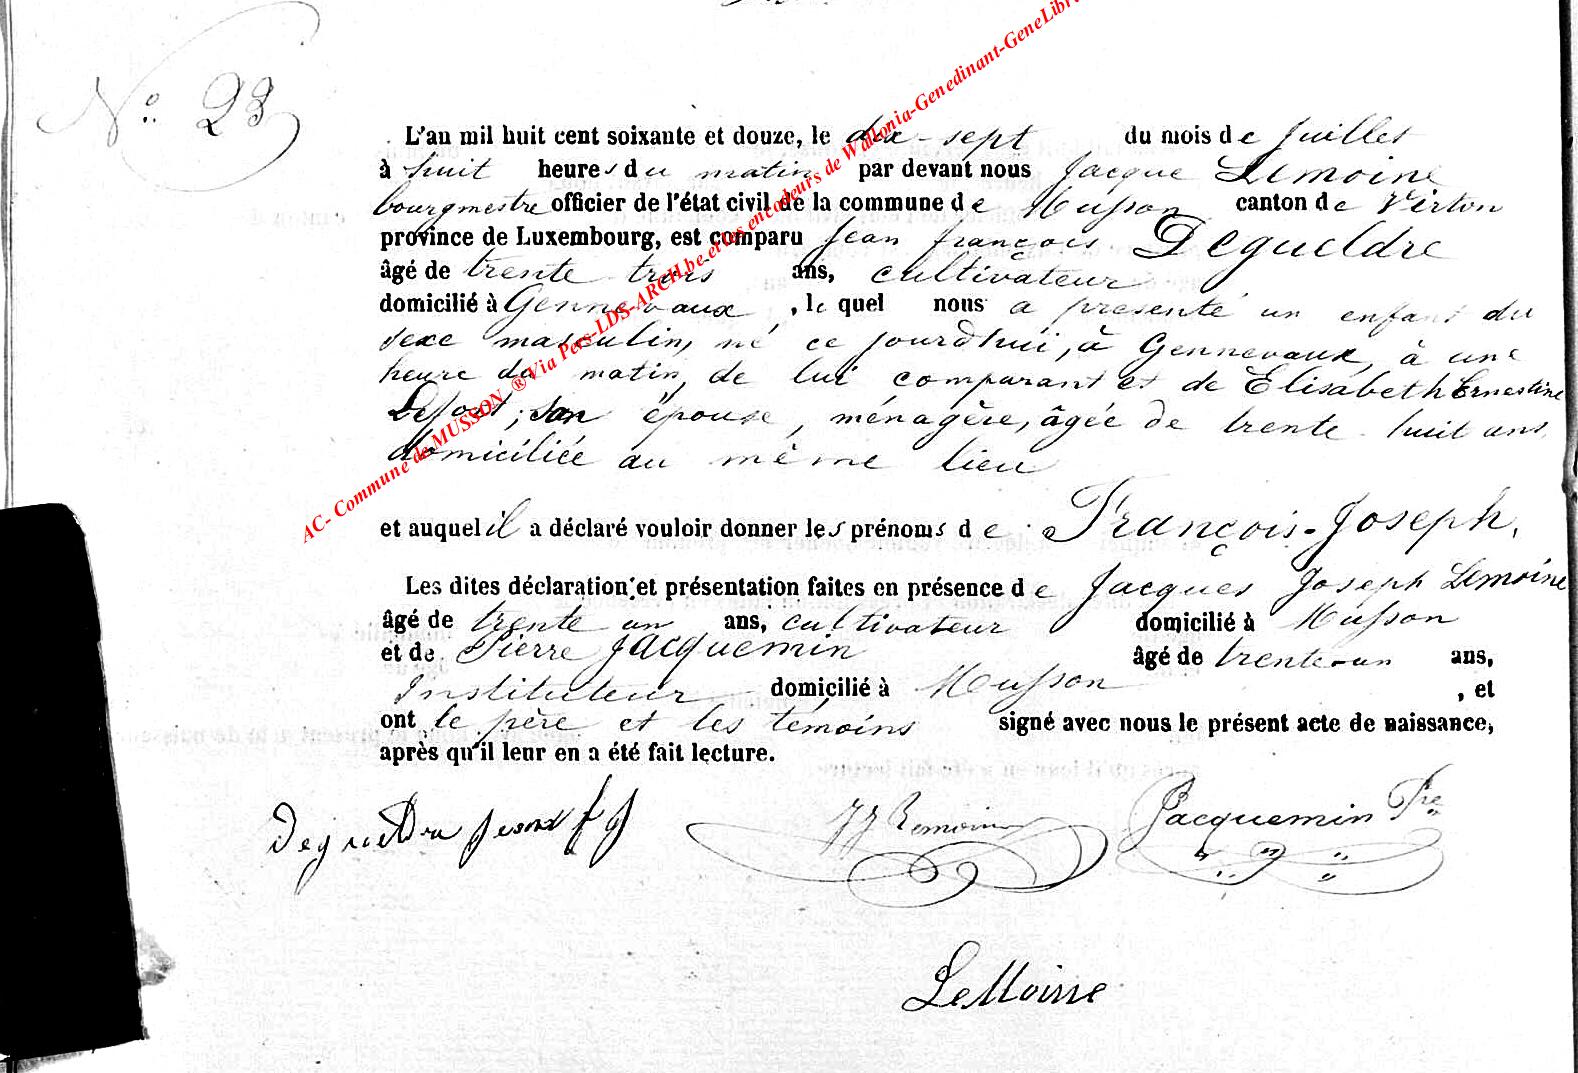 N° 23
L'an mil huit cent soixante et douze, le dix-sept du mois de Juillet
à huit heures du matin par devant nous Jacque Lemoine
bourgmestre officier de l'état civil de la commune de Musson canton de Virton
province de Luxembourg, est comparu Jean François Degueldre
âgé de trente trois ans, cultivateur
domicilié à Gennevaux, lequel nous a présenté un enfant du
sexe masculin, né ce jourd'hui, à Gennevaux, à une
heure du matin, de lui comparant et de Elisabeth Ernestine
son épouse, ménagère, âgée de trente-huit ans,
domiciliée au même lieu
et auquel il a déclaré vouloir donner les prénoms de François-Joseph.
Les dites déclaration et présentation faites en présence de Jacques Joseph Lemoine
âgé de trente un ans, cultivateur domicilié à Musson
et de Pierre Jacquemin âgé de trente-un ans,
Instituteur domicilié à Musson, et
ont le père et les témoins signé avec nous le présent acte de naissance,
après qu'il leur en a été fait lecture.
JJ Lemoine Jacquemin Pre
LeMoine
AC- Commune de MUSSON ® Via Pers-LDS-ARCH.be et les encodeurs de Wallonia-Genedinant-GeneLibre